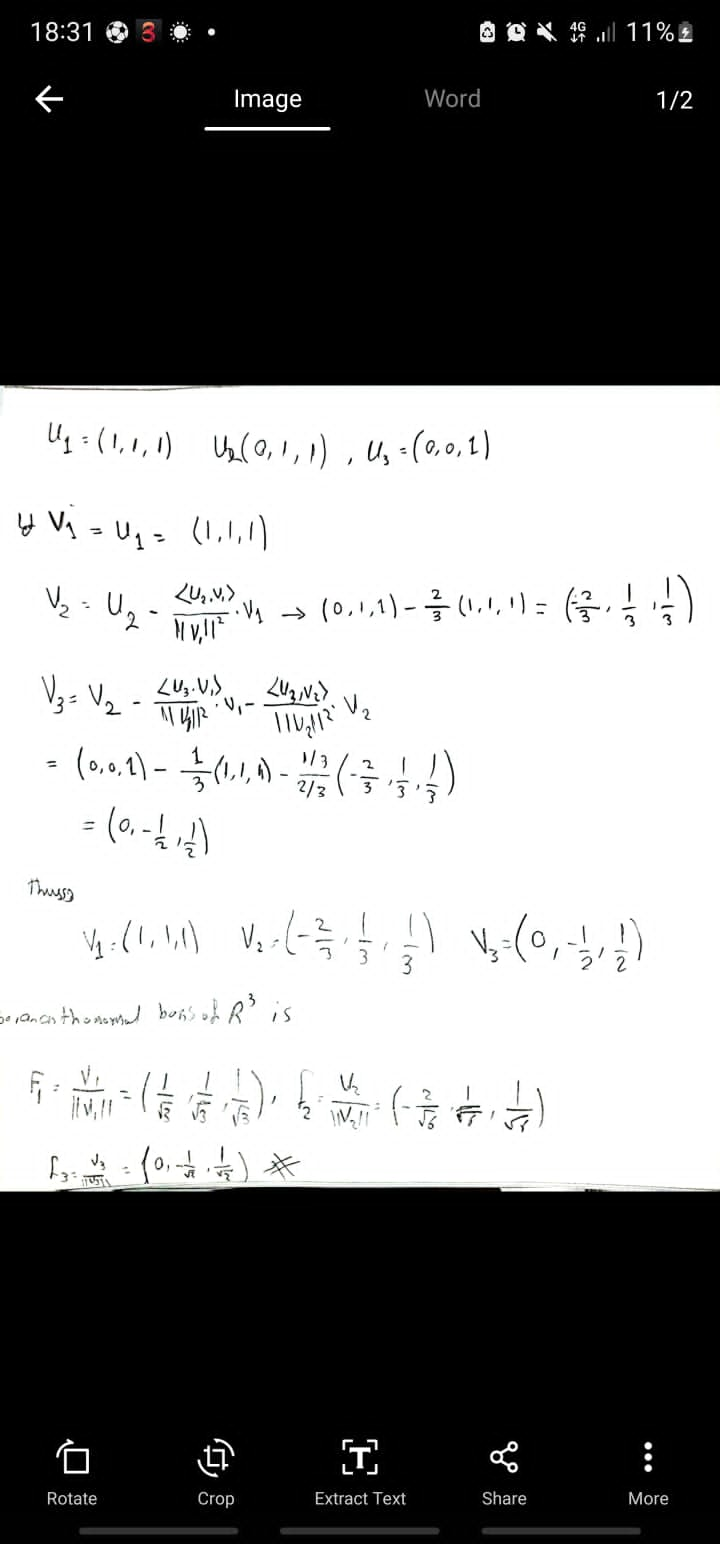 18:31 3 4G 11%
Image Word 1/2
U₁ = (1, 1, 1) U₂(0, 1, 1) , U₃ = (0, 0, 1)
V₁ = U₁ = (1, 1, 1)
V₂ = U₂ - <U₂, V₁>/||V₁||² · V₁ → (0, 1, 1) - 2/3 (1, 1, 1) = (-2/3, 1/3, 1/3)
V₃ = V₂ - <U₃, V₁>/||V₁||² · V₁ - <U₃, V₂>/||V₂||² · V₂
= (0, 0, 1) - 1/3 (1, 1, 1) - 1/3 / 2/3 (-2/3, 1/3, 1/3)
= (0, -1/2, 1/2)
V₁ = (1, 1, 1) V₂ = (-2/3, 1/3, 1/3) V₃ = (0, -1/2, 1/2)
of R³ is
F₁ = V₁/||V₁|| = (1/√3, 1/√3, 1/√3), f₂ = V₂/||V₂|| = (-2/√6, 1/√6, 1/√6)
f₃ = V₃/||V₃|| = (0, -1/√2, 1/√2)
Rotate Crop Extract Text Share More